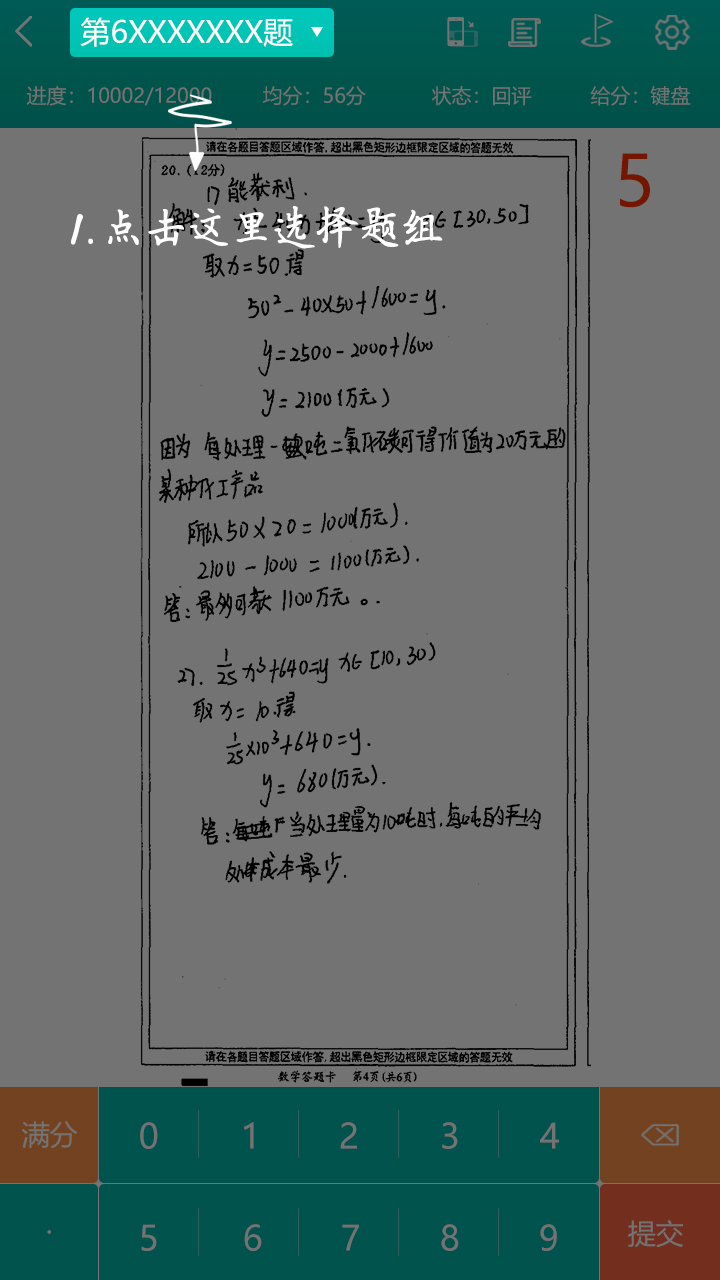 第6XXXXXXX题
进度：10002/12000 均分：56分 状态：回评 给分：键盘
请在各题目答题区域作答，超出黑色矩形边框限定区域的答题无效
5
20.（12分）
1) 能获利.
1.点击这里选择题组
∈[30,50]
取x=50得
50²-40×50+1600=y.
y=2500-2000+1600
y=2100(万元)
因为 每处理一吨二氧化碳可得价值为20万元的
某种化工产品
所以50×20=1000(万元).
2100-1000=1100(万元).
答:最多可获1100万元。.
27. 1/25 x³+640=y x∈[10,30)
取x=10.得
1/25×10³+640=y.
y=680(万元).
答: 当处理量为10吨时.每吨的平均
成本最少.
请在各题目答题区域作答，超出黑色矩形边框限定区域的答题无效
数学答题卡 第4页(共6页)
满分 0 1 2 3 4
. 5 6 7 8 9 提交